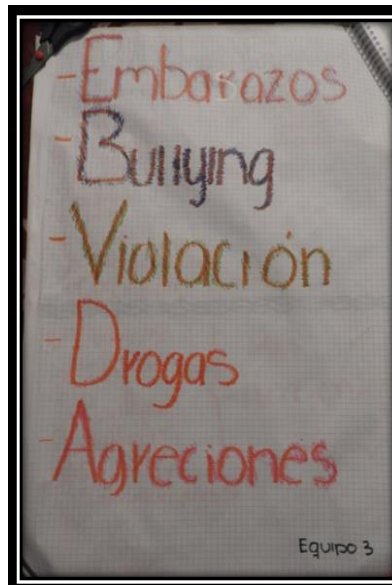 -Embarazos
-Bullying
-Violación
-Drogas
-Agreciones
Equipo 3